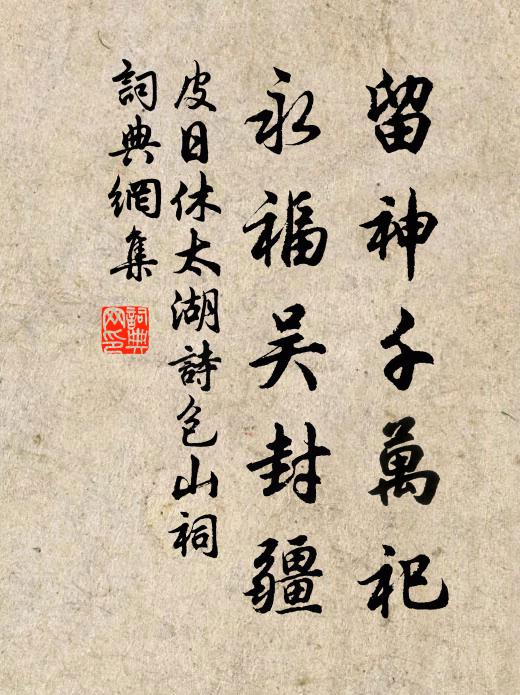 留神千萬祀
永福吴封疆
皮日休太湖詩包山祠
詞典網集
詞典網印